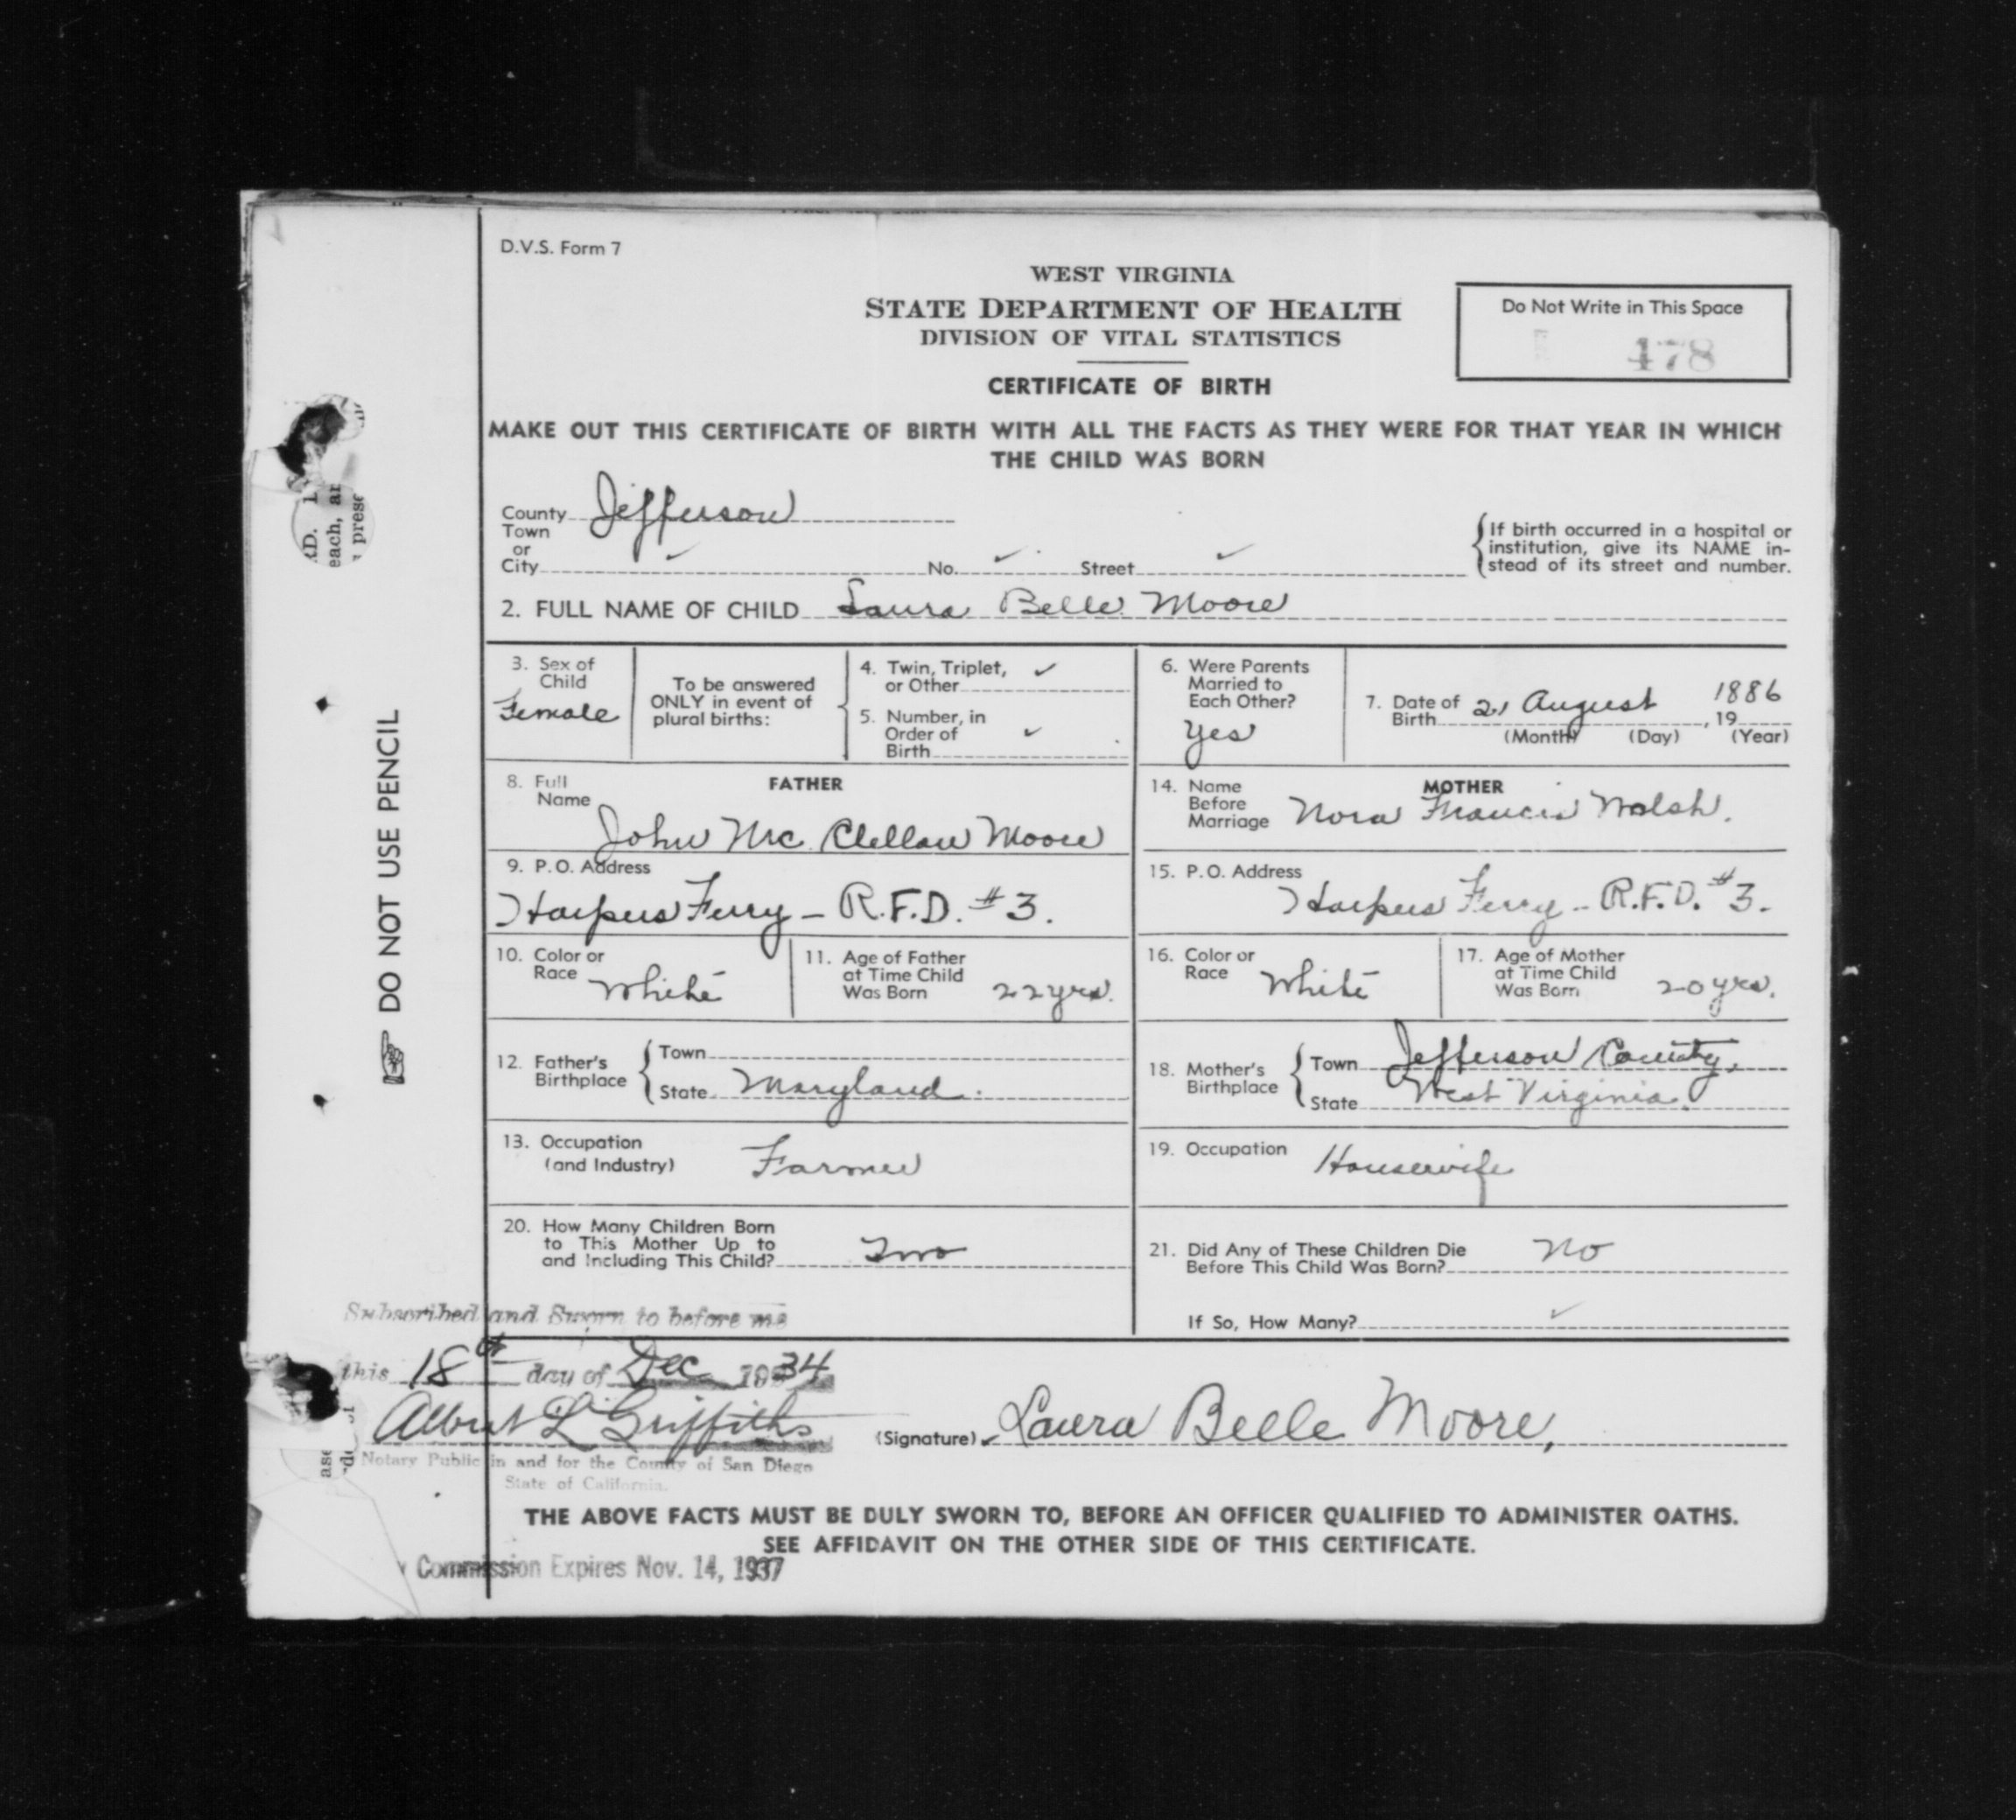 D.V.S. Form 7
WEST VIRGINIA
STATE DEPARTMENT OF HEALTH
DIVISION OF VITAL STATISTICS
Do Not Write in This Space
478
CERTIFICATE OF BIRTH
MAKE OUT THIS CERTIFICATE OF BIRTH WITH ALL THE FACTS AS THEY WERE FOR THAT YEAR IN WHICH
THE CHILD WAS BORN
County Jefferson
Town
or
City ✓ No. ✓ Street ✓
If birth occurred in a hospital or
institution, give its NAME in-
stead of its street and number.
2. FULL NAME OF CHILD Laura Belle Moore
3. Sex of
Child
Female
To be answered
ONLY in event of
plural births:
4. Twin, Triplet, ✓
or Other
5. Number, in
Order of ✓
Birth
6. Were Parents
Married to
Each Other?
Yes
7. Date of
Birth 21 August , 19 1886
(Month) (Day) (Year)
FATHER
8. Full
Name
John Mc Clellan Moore
9. P.O. Address
Harpers Ferry - R.F.D. #3.
10. Color or
Race White
11. Age of Father
at Time Child
Was Born 22 yrs.
12. Father's
Birthplace
Town
State Maryland.
13. Occupation
(and Industry) Farmer
MOTHER
14. Name
Before
Marriage Nora Francis Walsh.
15. P.O. Address
Harpers Ferry - R.F.D. #3.
16. Color or
Race White
17. Age of Mother
at Time Child
Was Born 20 yrs.
18. Mother's
Birthplace
Town Jefferson County,
State West Virginia.
19. Occupation Housewife
20. How Many Children Born
to This Mother Up to
and Including This Child? Two
21. Did Any of These Children Die
Before This Child Was Born? No
If So, How Many? ✓
Subscribed and Sworn to before me
this 18th day of Dec 1934
Albert L Griffiths
Notary Public in and for the County of San Diego
State of California.
(Signature) Laura Belle Moore,
THE ABOVE FACTS MUST BE DULY SWORN TO, BEFORE AN OFFICER QUALIFIED TO ADMINISTER OATHS.
SEE AFFIDAVIT ON THE OTHER SIDE OF THIS CERTIFICATE.
Commission Expires Nov. 14, 1937
DO NOT USE PENCIL
each, ar
prese